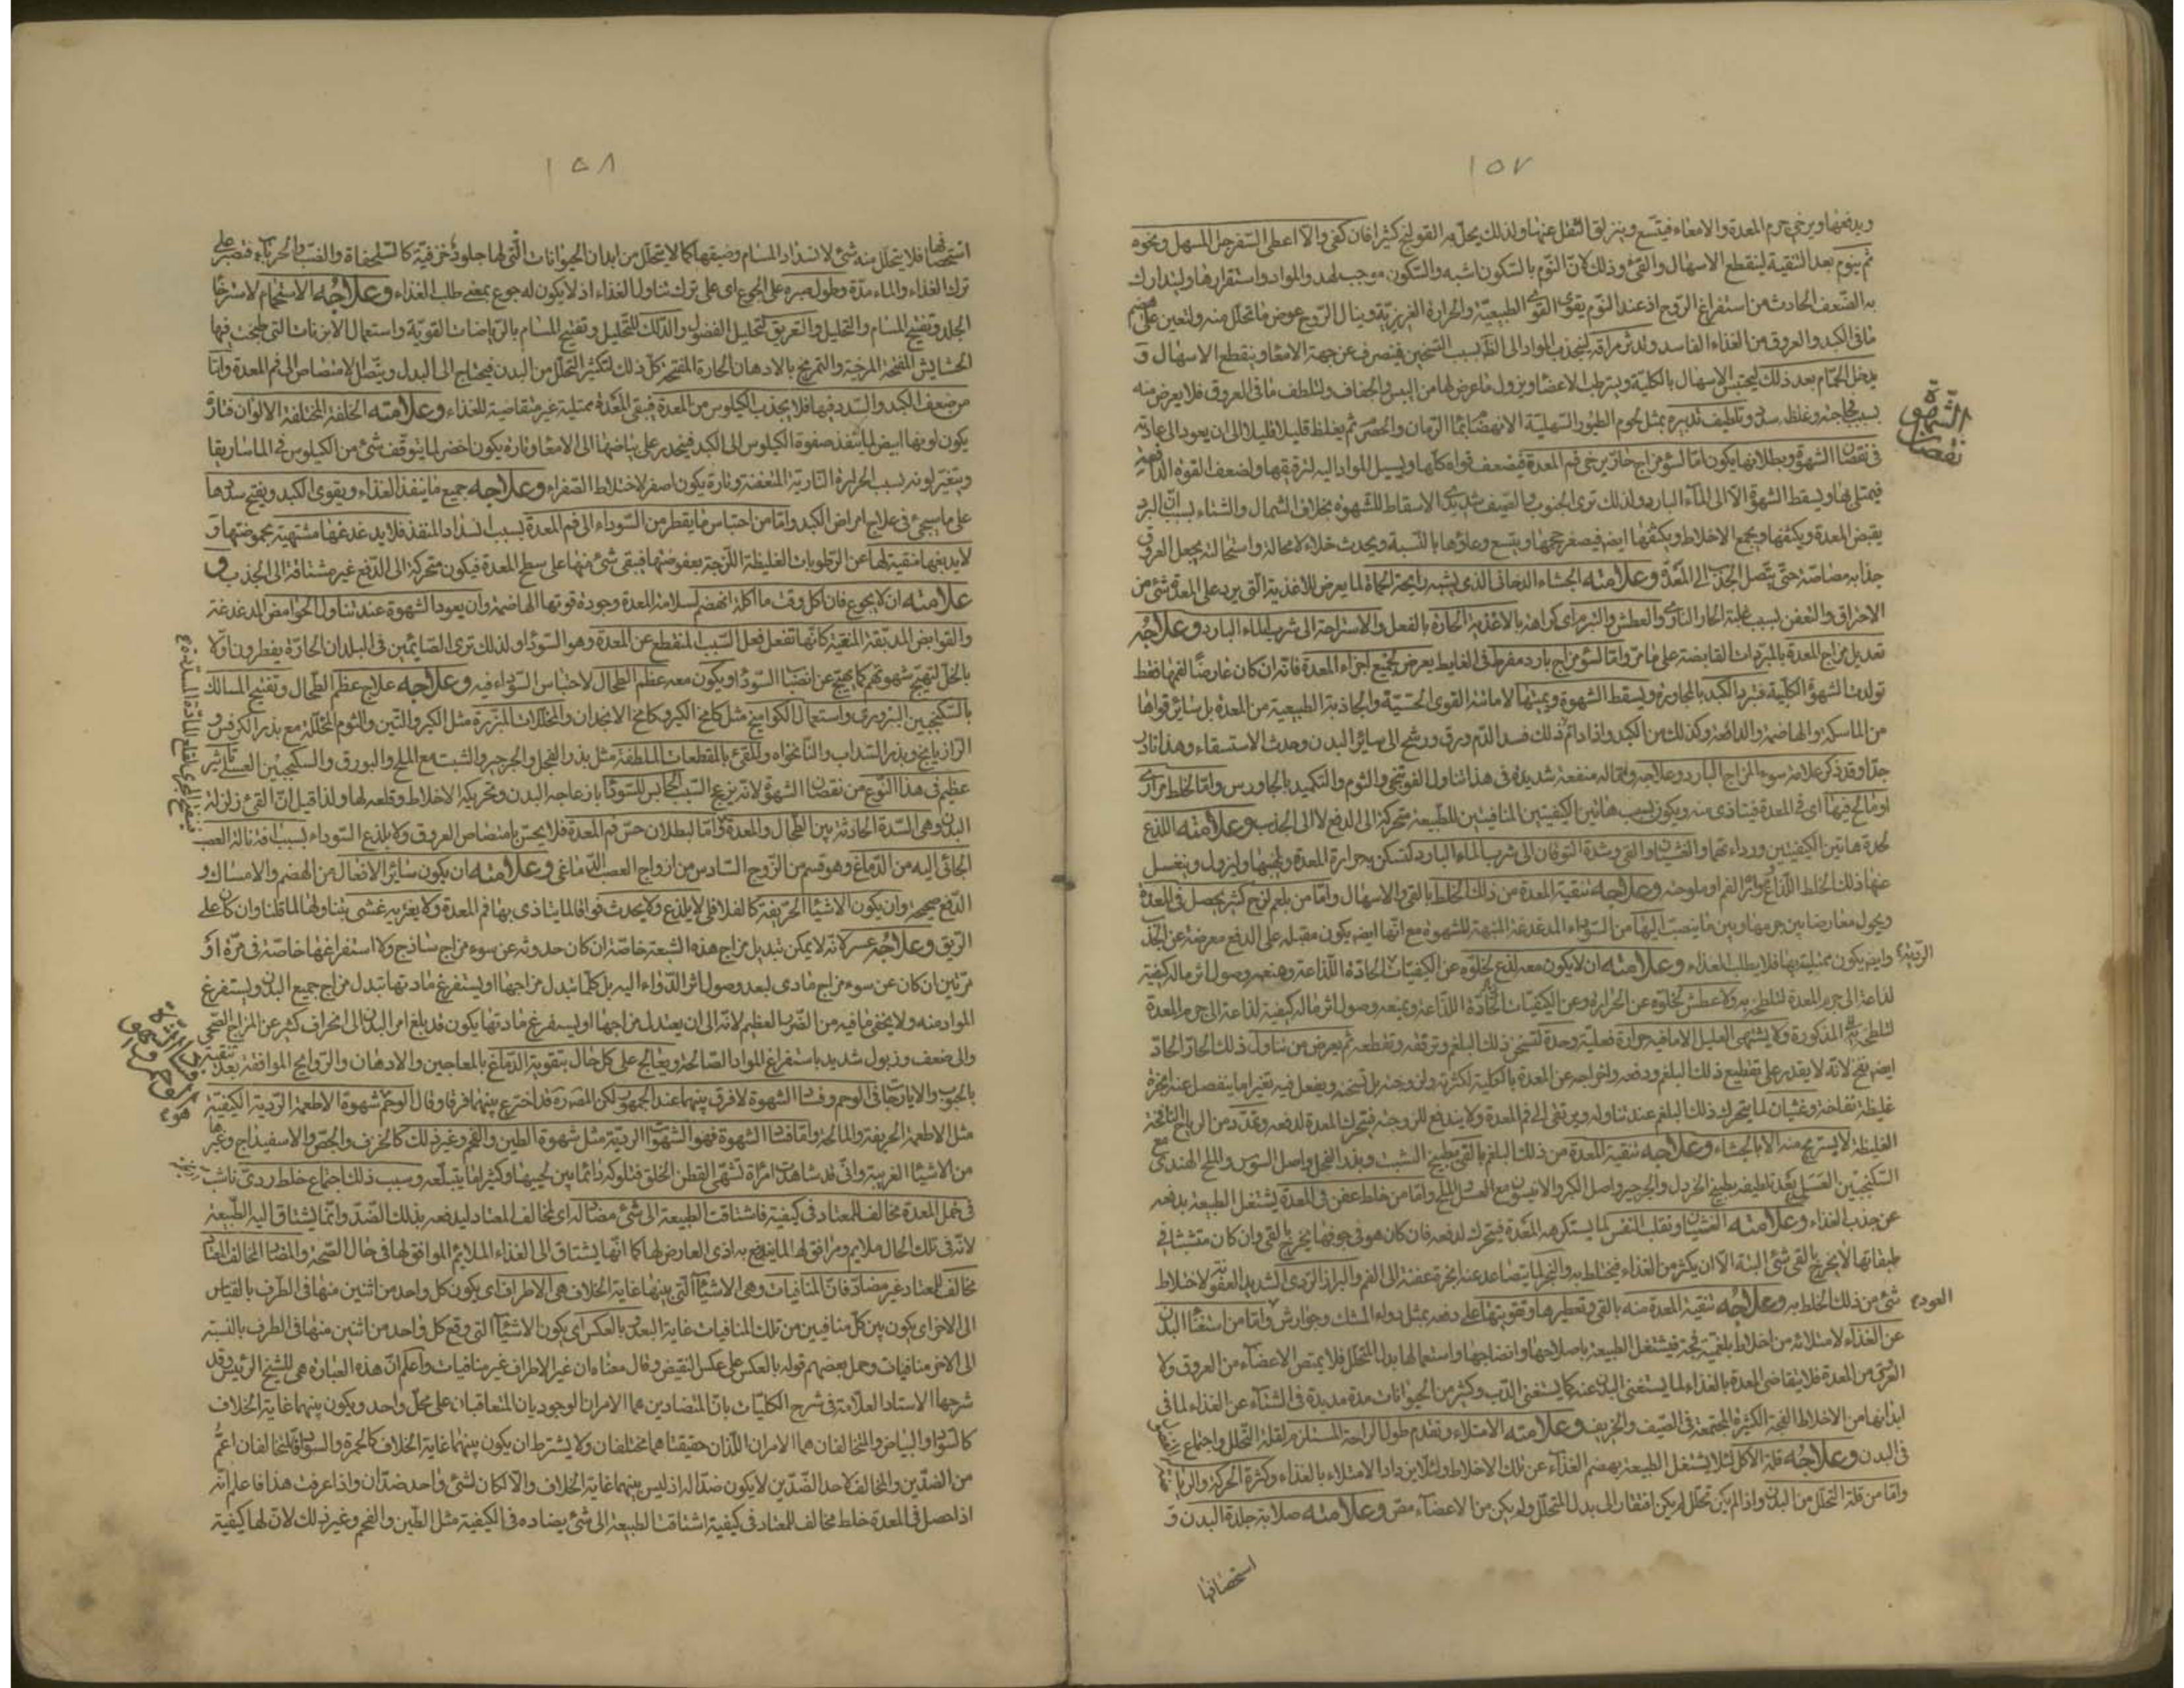 ١٥٧
ويدفعها ويرخي جرم المعدة والامعاء فيتسع وينزلق الثفل عنها ولذلك يحل به القولنج كثيرا فان كفى والا اعطى السفرجل المسهل ونحوه
ثم ينوم بعد التنقية لينقطع الاسهال والقئ وذلك لان النوم بالسكون اشبه والسكون موجب لهدو المواد واستقرارها وليتدارك
به الضعف الحادث من استفراغ الروح اذ عند النوم يقوى القوى الطبيعية والحرارة الغريزية وينال الروح عوض ما تحلل منه ولتعين على هضم
ما في الكبد والعروق من الغذاء الفاسد ولدثر مراقه لينجذب المواد الى الظاهر بسبب التسخين فينصرف عن جهة الامعاء وينقطع الاسهال و
يدخل الحمام بعد ذلك ليحتبس الاسهال بالكلية ويترطب الاعضاء ويزول ما عرض لها من اليبس والجفاف ولتلطف ما في العروق فلا يعرض منه
بسبب فجاجته وغلظه سدد وتلطيف تدبيره بمثل لحوم الطيور السهلية الانهضام بماء الرمان والحصرم ثم يغلظ قليلا قليلا الى ان يعود الى عادته
نقصان الشهوة
في نقصان الشهوة وبطلانها يكون اما لسوء مزاج حار يرخي فم المعدة فيضعف قواه كلها ويسيل المواد اليه لترقيقها ولضعف القوة الدافعة
فيمتلي بها ويسقط الشهوة الا الى الماء البارد ولذلك ترى الجنوب والصيف شديدي الاسقاط للشهوة بخلاف الشمال والشتاء بسبب ان البرد
يقبض المعدة ويكثفها ويجمع الاخلاط ويكثفها ايضا فيصغر حجمها ويتسع وعاؤها بالنسبة ويحدث خلاء لا محالة واستحالته يجعل العروق
جذابة مصاصة حتى يتصل الجذب الى المعدة وعلامته الجشاء الدخاني الذي يشبه رايحة الحماة لما يعرض للاغذية التي يرد على المعدة شئ من
الاحتراق والتعفن بسبب غلبة الحار الناري والعطش والتبرم اى كراهته بالاغذية الحارة بالفعل والاستراحة الى شرب الماء البارد وعلاجه
تعديل مزاج المعدة بالمبردات القابضة على ما مر واما لسوء مزاج بارد مفرط في الغايط يعرض لجميع اجزاء المعدة فانه ان كان عارضا لفمها فقط
تولدت الشهوة الكلبية فتبرد الكبد بالمجاورة ويسقط الشهوة ويميتها لاماتته القوى الحسية والجاذبة الطبيعية من المعدة بل سائر قواها
من الماسكة والهاضمة والدافعة وكذلك من الكبد واذا دام ذلك فسد الدم ورق ورشح الى سائر البدن وحدث الاستسقاء وهذا نادر
جدا وقد ذكر علامة سوء المزاج البارد وعلاجه ومما له منفعة شديدة في هذا تناول الفوتنجي والثوم والتكميد بالجاورس واما لخلط مراري
او مالح فيها اى في المعدة فيتاذى منه ويكون بسبب هاتين الكيفيتين المنافيتين للطبيعة متحركة الى الدفع لا الى الجذب وعلامته اللذع
لحدة هاتين الكيفيتين ورداءتهما والغثيان والقئ وشدة التوقان الى شرب الماء البارد لتسكن به حرارة المعدة ولهيبها وليزول وينغسل
عنها ذلك الخلط اللذاع ومرارة الفم او ملوحته وعلاجه تنقية المعدة من ذلك الخلط بالقئ والاسهال واما من بلغم لزج كثير يحصل في المعدة
ويحول معارضا بين جرمها وبين ما ينصب اليها من السوداء المدغدغة المنبهة للشهوة مع انها ايضا يكون مقبلة على الدفع معرضة عن الجذب
وايضا يكون ممتلية بها فلا يطلب الغذاء وعلامته ان لا يكون معه لذع لخلوه عن الكيفيات الحادة اللذاعة ومنعه وصول اثر ماله كيفية
لذاعة الى جرم المعدة لتلطخه به ولا عطش لخلوه عن الحرارة وعن الكيفيات الحادة اللذاعة ويمنعه وصول اثر ماله كيفية لذاعة الى جرم المعدة
لتلطخه المذكورة ولا يشتهي العليل الا ما فيه حرارة فعلية وحدة لتسخن ذلك البلغم وترققه وتقطعه ثم يعرض من تناول ذلك الحار الحاد
ايضا نفخ لانه لا يقدر على تقطيع ذلك البلغم ودفعه واخراجه عن المعدة بالكلية لكثرته ولزوجته بل تسخنه ويفعل فيه تغيرا ما ينفصل عنه ابخرة
غليظة نفاخة وغثيان لما يتحرك ذلك البلغم عند تناوله ويرتقى الى فم المعدة ولا يندفع للزوجته فيتحرك المعدة لدفعه وتمدد من الرياح النافخة
الغليظة لا يستريح منه الا بالجشاء وعلاجه تنقية المعدة من ذلك البلغم بالقئ بطبيخ الشبت وبذر الفجل واصل السوس والملح الهندي مع
السكنجبين العسلي بعد تلطيفه بطبيخ الخردل والجرجير واصل الكبر والانيسون مع العسل والملح واما من خلط عفن في المعدة يشتغل الطبيعة بدفعه
عن جذب الغذاء وعلامته الغثيان وتقلب النفس لما يستكرهه المعدة فيتحرك لدفعه فان كان هو في جوفها يخرج بالقئ وان كان متشبثا في
طبقاتها لا يخرج بالقئ شئ البتة الا ان يكثر من الغذاء فيختلط به والبخر لما يتصاعد عنه ابخرة عفنة الى الفم والبراز الردي الشديد العفن لاختلاط
شئ من ذلك الخلط به وعلاجه تنقية المعدة منه بالقئ وتعطيرها وتقويتها على دفعه بمثل دواء المسك وجوارش العود واما من استغناء البدن
عن الغذاء لامتلائه من اخلاط بلغمية فجة فيشتغل الطبيعة باصلاحها وانضاجها واستعمالها بدل المتحلل فلا يمتص الاعضاء من العروق ولا
العروق من المعدة فلا يتقاضى المعدة بالغذاء لما يستغنى البدن عنه كما يستغنى الدب وكثير من الحيوانات مدة مديدة في الشتاء عن الغذاء لما في
ابدانها من الاخلاط الفجة الكثيرة المجتمعة في الصيف والخريف وعلامته الامتلاء وتقدم طول الراحة المستلزم لقلة التحلل واجتماع
في البدن وعلاجه قلة الاكل لئلا يشتغل الطبيعة بهضم الغذاء عن تلك الاخلاط ولئلا يزداد الامتلاء بالغذاء وكثرة الحركة والرياضة
واما من قلة التحلل من البدن واذا لم يكن تحلل لم يكن افتقار الى بدل المتحلل ولم يكن من الاعضاء مص وعلامته صلابة جلدة البدن و
استحصافها
١٥٨
استحصافها فلا يتحلل منه شئ لانسداد المسام وضيقها كما لا يتحلل من ابدان الحيوانات التي لها جلود خزفية كالسلحفاة والضب والحرباء فتصبر على
ترك الغذاء والماء مدة وطول صبره على الجوع اى على ترك تناول الغذاء اذ لا يكون له جوع بمعنى طلب الغذاء وعلاجه الاستحمام لاسترخاء
الجلد وتفتيح المسام والتحليل والتعريق لتحليل الفضول والدلك للتحليل وتفتيح المسام بالرياضات القوية واستعمال الابزنات التي طبخت فيها
الحشايش المفتحة المرخية والتمريخ بالادهان الحارة المفتحة كل ذلك لتكثير التحلل من البدن فيحتاج الى البدل ويتصل الامتصاص الى فم المعدة واما
من ضعف الكبد والسدد فيها فلا يجذب الكيلوس من المعدة فيبقى المعدة ممتلية غير متقاضية للغذاء وعلامته الخلفة المختلفة الالوان فتارة
يكون لونها ابيض لما ينفذ صفوة الكيلوس الى الكبد فينحدر على بياضها الى الامعاء وتارة يكون اخضر لما يتوقف شئ من الكيلوس في الماساريقا
ويتغير لونه بسبب الحرارة النارية المتعفنة وتارة يكون اصفر لاختلاط الصفراء وعلاجه جميع ما ينفذ الغذاء ويقوى الكبد ويفتح سددها
على ما سيجئ في علاج امراض الكبد واما من احتباس ما يقطر من السوداء الى فم المعدة بسبب انسداد المنفذ فلا يدغدغها مشتهية بحموضتها و
لا يدبغها منقية لها عن الرطوبات الغليظة اللزجة بعفوصتها فيبقى شئ منها على سطح المعدة فيكون متحركة الى الدفع غير مشتاقة الى الجذب و
علامته ان لا يجوع فان اكل وقت ما اكله انهضم لسلامة المعدة وجودة قوتها الهاضمة وان يعود الشهوة عند تناول الحوامض المدغدغة
والقوابض المدبغة المنقية كانها تفعل فعل السبب المنقطع عن المعدة وهو السوداء ولذلك ترى الصايمين في البلدان الحارة يفطرون اولا
بالخل لتهيج شهوتهم كما يهيج عن انصباب السوداء ويكون معه عظم الطحال لاحتباس السوداء فيه وعلاجه علاج عظم الطحال وتفتيح المسالك
بالسكنجبين البزوري واستعمال الكواميخ مثل كامخ الكبر وكامخ الانجدان والمخللات المبزرة مثل الكبر والتين والثوم المخللة مع بذر الكرفس و
الرازيانج وبذر السداب والنانخواه وللقئ بالمقطعات الملطفة مثل بذر الفجل والجرجير والشبت مع الملح والبورق والسكنجبين العسلي تاثير
عظيم في هذا النوع من نقصان الشهوة لانه يزيج السبب الحابس للسوداء بازعاجه البدن وتحريكه الاخلاط وقلعه لها ولذا قيل ان القئ زلزلة
فيتفتح المجرى لقلع المادة السادة
البدن وهى السدة الحادثة بين الطحال والمعدة واما لبطلان حس فم المعدة فلا يحس بامتصاص العروق ولا بلذع السوداء بسبب افة نالت العصب
الجائي اليه من الدماغ وهو قسم من الزوج السادس من ازواج العصب الدماغي وعلامته ان يكون سائر الافعال من الهضم والامساك و
الدفع صحيحة وان يكون الاشياء الحريفة كالفلافلي لا يلذع ولا يحدث فواقا لما يتاذى بها فم المعدة ولا يعتريه غشى بتناولها لما قلنا وان كان على
الريق وعلاجه عسر لانه لا يمكن تبديل مزاج هذه الشعبة خاصة ان كان حدوثه عن سوء مزاج ساذج ولا استفراغها خاصة في مرة او
مرتين ان كان عن سوء مزاج مادى لبعد وصول اثر الدواء اليه بل كلما تبدل مزاجها او يستفرغ مادتها تبدل مزاج جميع البدن ويستفرغ
المواد منه ولا يخفى ما فيه من الضرر العظيم لانه الى ان يعتدل مزاجها او يستفرغ مادتها يكون قد بلغ امر البدن الى انحراف كثير عن المزاج الصحي
والى ضعف وذبول شديد باستفراغ المواد الصالحة ويعالج على كل حال بتقوية الدماغ بالمعاجين والادهان والروايح الموافقة بعد تنقيته
بالحبوب والايارجات في الوحم وفساد الشهوة لا فرق بينهما عند الجمهور لكن المص ره قد اخترع بينهما فرقا وقال الوحم شهوة الاطعمة الردية الكيفية
مثل الاطعمة الحريفة والمالحة واما فساد الشهوة فهو الشهوة الردية مثل شهوة الطين والفحم وغير ذلك كالخزف والجص والاسفيداج وغيرها
من الاشياء الغريبة وانى قد شاهدت امراة تشتهى القطن الخلق فتلوكه دائما بين لحييها وكثيرا ما يتبلعه وسبب ذلك اجتماع خلط ردى ناشب
في خمل المعدة مخالف للمعتاد في كيفيته فاشتاقت الطبيعة الى شئ مضاد له اى لمخالف المعتاد ليدفعه بذلك الضد وانما يشتاق اليه الطبيعة
لانه في تلك الحال ملايم وموافق لها لما يندفع به اذى العارض لها كما انها يشتاق الى الغذاء الملايم الموافق لها في حال الصحة والمضاد المخالف المعتاد
مخالف للمعتاد غير مضاد فان المنافيات وهى الاشياء التي بينها غاية الخلاف هى الاطراف اى يكون كل واحد من اثنين منها في الطرف بالقياس
الى الاخر اى يكون بين كل منافيين من تلك المنافيات غاية البعد بالعكس اى يكون الاشياء التي وقع كل واحد من اثنين منها في الطرف بالنسبة
الى الاخر منافيات وحمل بعضهم قوله بالعكس على عكس النقيض وقال معناه ان غير الاطراف غير منافيات واعلم ان هذه العبارة هى للشيخ الرئيس وقد
شرحها الاستاد العلامة في شرح الكليات بان المتضادين هما الامران الوجوديان المتعاقبان على محل واحد ويكون بينهما غاية الخلاف
كالسواد والبياض والمتخالفان هما الامران اللذان حقيقتاهما مختلفان ولا يشترط ان يكون بينهما غاية الخلاف كالحمرة والسواد فالمتخالفان اعم
من الضدين والمخالف لاحد الضدين لا يكون ضدا له اذ ليس بينهما غاية الخلاف والا لكان لشئ واحد ضدان واذا عرفت هذا فاعلم انه
اذا حصل في المعدة خلط مخالف للمعتاد في كيفيته اشتاقت الطبيعة الى شئ يضاده في الكيفية مثل الطين والفحم وغير ذلك لان لها كيفية